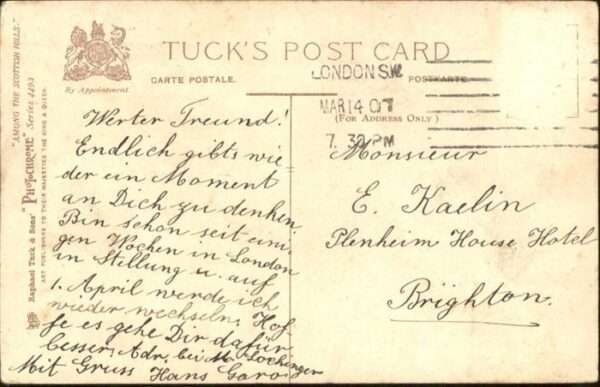 "AMONG THE SCOTTISH HILLS."
Raphael Tuck & Sons' "PHOTOCHROME" Series 4493
ART PUBLISHERS TO THEIR MAJESTIES THE KING & QUEEN.
By Appointment.
TUCK'S POST CARD
CARTE POSTALE.
POSTKARTE.
(FOR ADDRESS ONLY)
LONDON S.W.
MAR 14 07
7. 30 PM
Werter Freund!
Endlich gibts wie
der ein Moment
an Dich zu denken.
Bin schon seit eini-
gen Wochen in London
in Stellung u. auf
1. April werde ich
wieder wechseln. Hof
fe es gehe Dir dafür
besser. Adr. bei
Mit Gruss Hans
Monsieur
E. Kaelin
Plenheim House Hotel
Brighton.